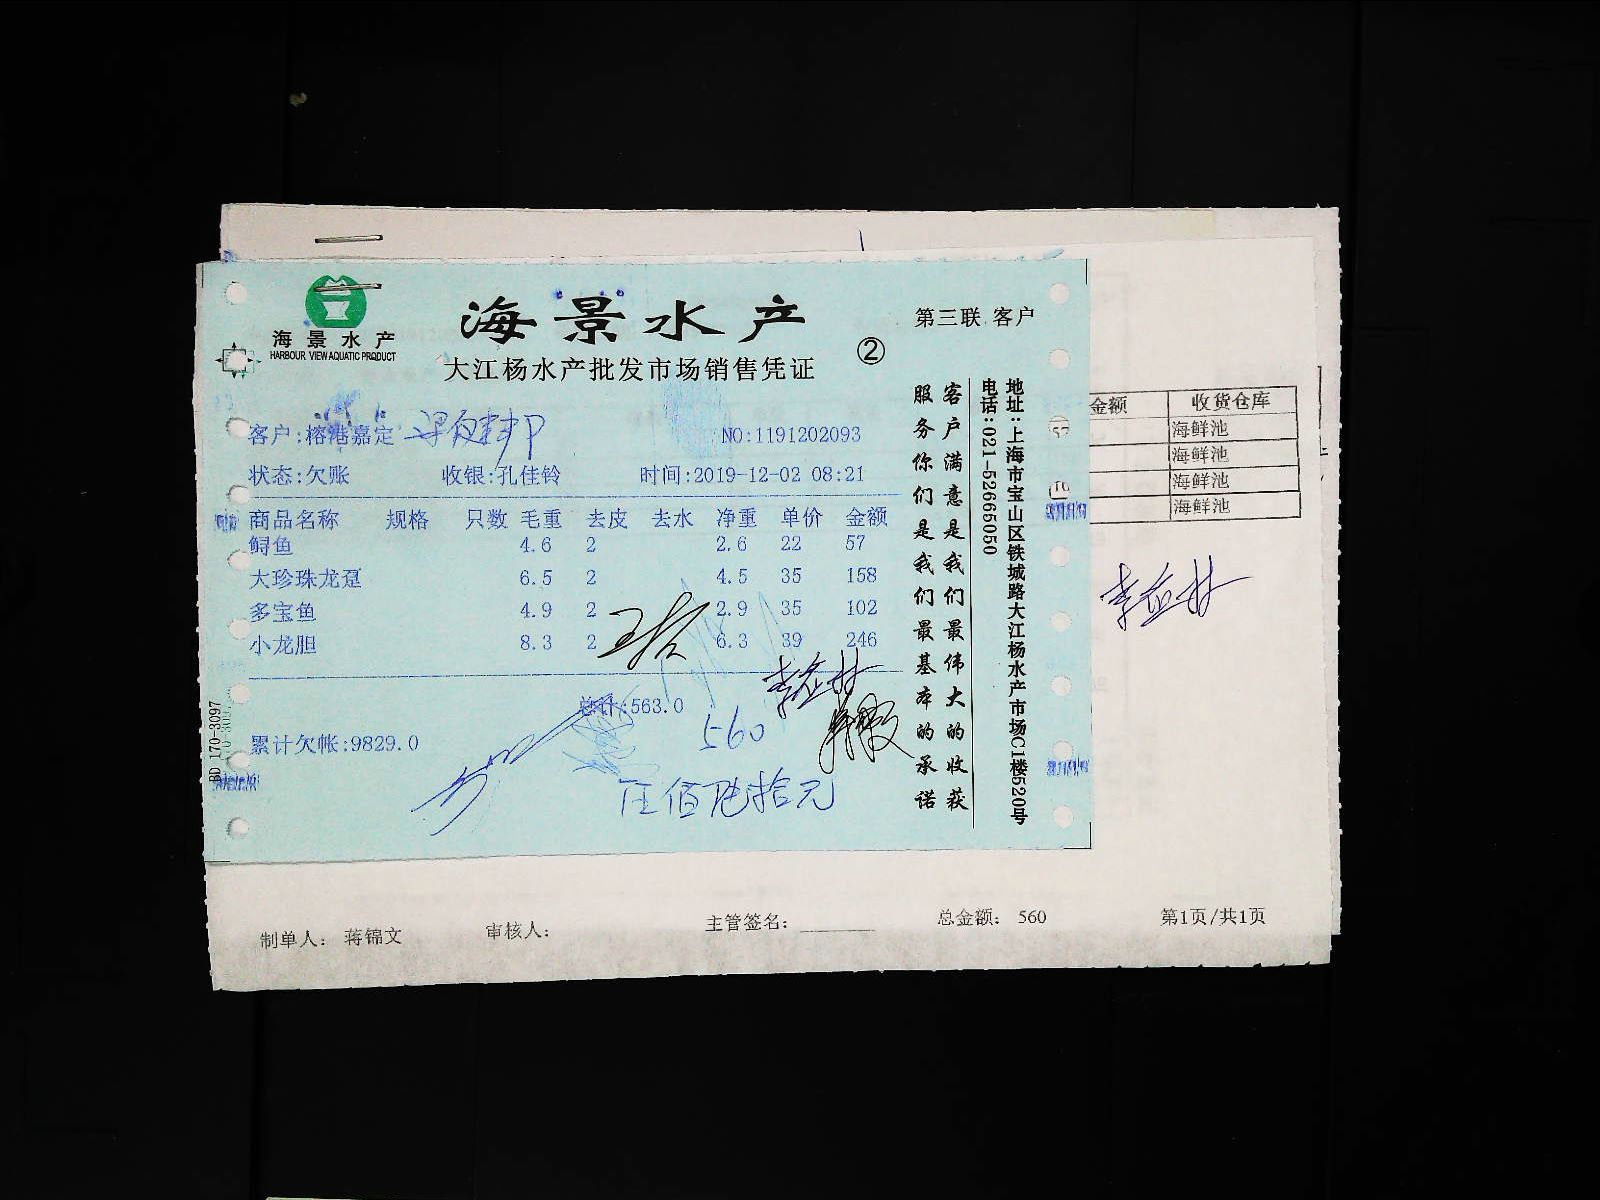 海景水产
HARBOUR VIEW AQUATIC PRODUCT
海景水产
大江杨水产批发市场销售凭证
②
第三联 客户
客户:榕港嘉定
NO:1191202093
状态:欠账 收银:孔佳铃 时间:2019-12-02 08:21
商品名称 规格 只数 毛重 去皮 去水 净重 单价 金额
鲟鱼 4.6 2 2.6 22 57
大珍珠龙趸 6.5 2 4.5 35 158
多宝鱼 4.9 2 2.9 35 102
小龙胆 8.3 2 6.3 39 246
总计:563.0
560
累计欠帐:9829.0
伍佰陆拾元
BD 170-3097
客户满意是我们最伟大的收获
服务你们是我们最基本的承诺
地址:上海市宝山区铁城路大江杨水产市场C1楼520号
电话:021-52665050
金额 收货仓库
57 海鲜池
海鲜池
海鲜池
海鲜池
制单人: 蒋锦文 审核人: 主管签名: 总金额: 560 第1页/共1页